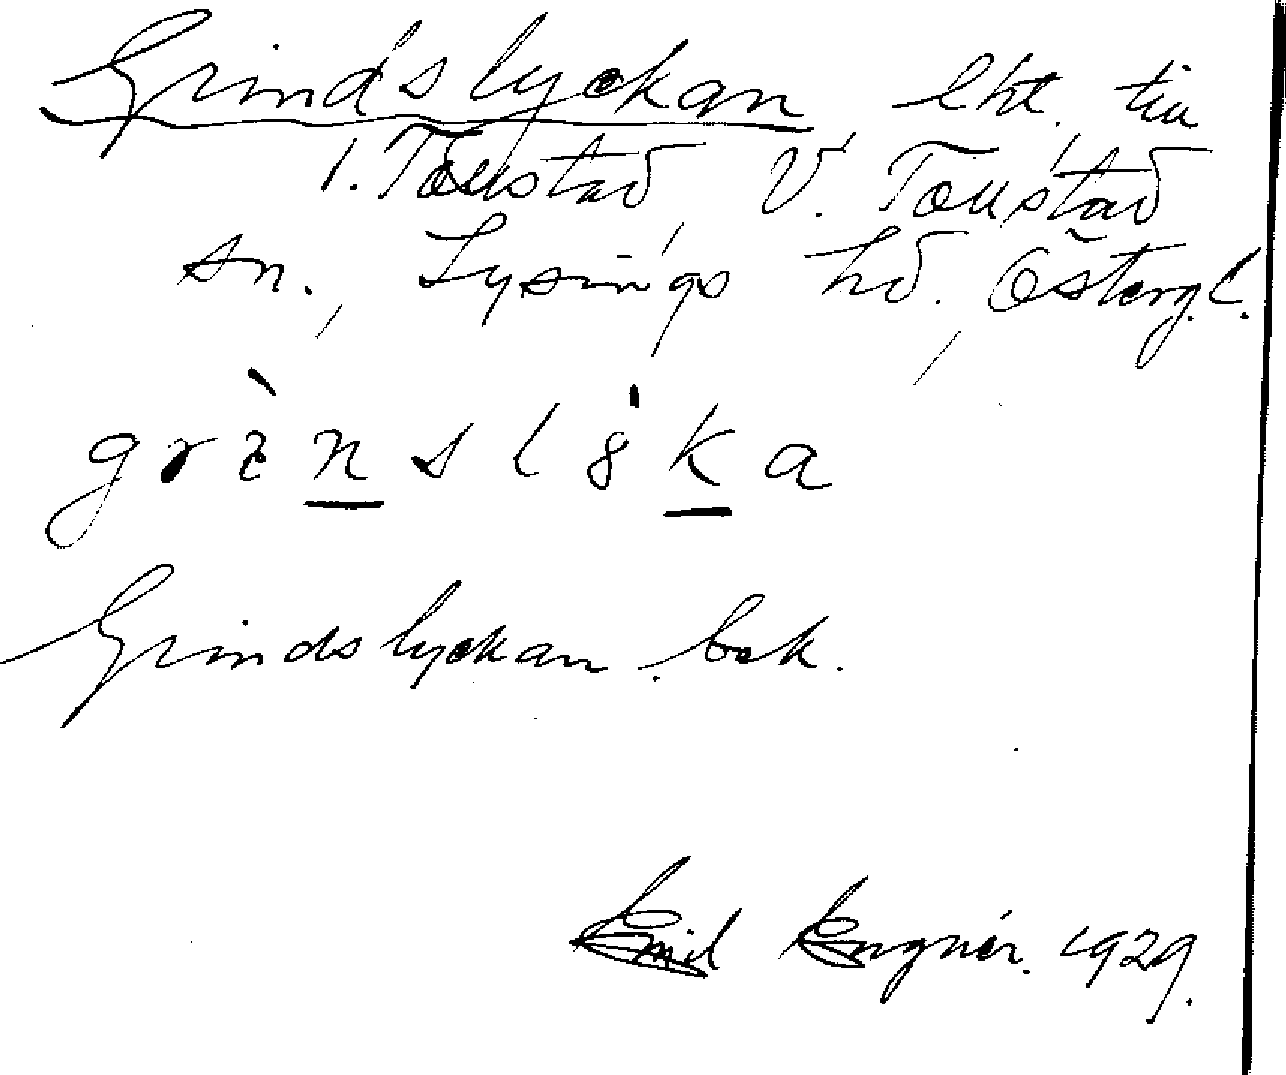 Grindslyckan lht. till
1. Tollstad, V. Tollstad
sn., Lysings hd., Östergl.
grènslëka
Grindslyckan. bek.
Emil Engnér. 1929.